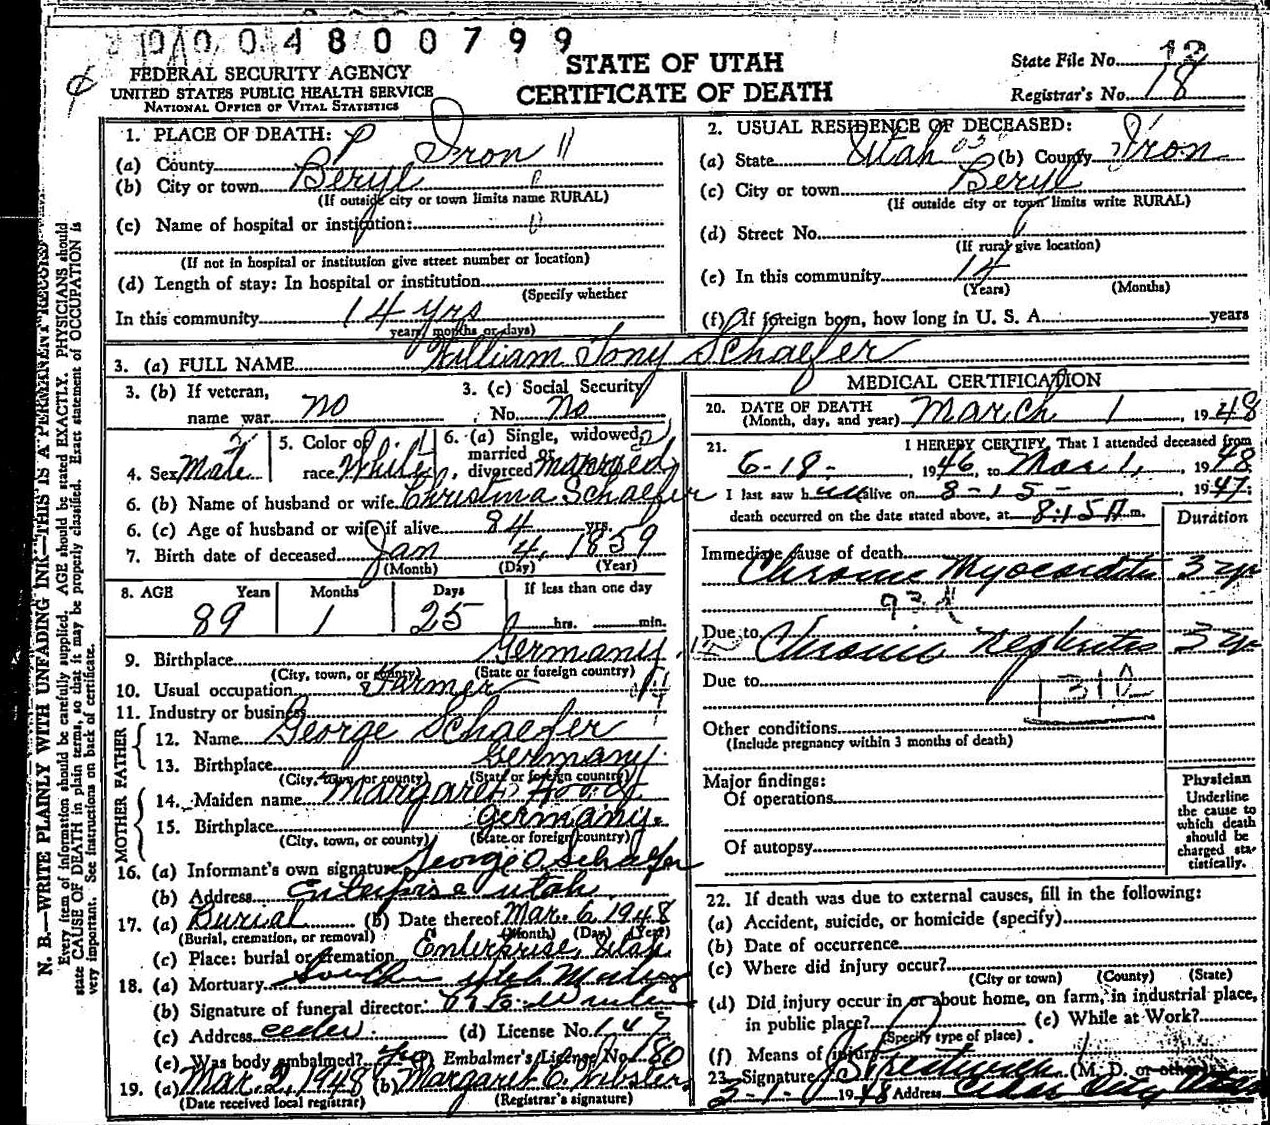 0 0 4 8 0 0 7 9 9
FEDERAL SECURITY AGENCY
UNITED STATES PUBLIC HEALTH SERVICE
NATIONAL OFFICE OF VITAL STATISTICS
STATE OF UTAH
CERTIFICATE OF DEATH
State File No. 12
Registrar's No. 18
N. B.—WRITE PLAINLY WITH UNFADING INK—THIS IS A PERMANENT RECORD.
Every item of information should be carefully supplied. AGE should be stated EXACTLY. PHYSICIANS should
state CAUSE OF DEATH in plain terms, so that it may be properly classified. Exact statement of OCCUPATION is
very important. See instructions on back of certificate.
1. PLACE OF DEATH:
(a) County Iron
(b) City or town Beryl
(If outside city or town limits name RURAL)
(c) Name of hospital or institution:
(If not in hospital or institution give street number or location)
(d) Length of stay: In hospital or institution
(Specify whether
In this community 14 yrs
years, months or days)
2. USUAL RESIDENCE OF DECEASED:
(a) State Utah (b) County Iron
(c) City or town Beryl
(If outside city or town limits write RURAL)
(d) Street No.
(If rural give location)
(e) In this community 14
(Years) (Months)
(f) If foreign born, how long in U. S. A. years
3. (a) FULL NAME William Tony Schaefer
3. (b) If veteran,
name war no
3. (c) Social Security
No. no
4. Sex Male
5. Color or
race White
6. (a) Single, widowed,
married or
divorced married
6. (b) Name of husband or wife Christina Schaefer
6. (c) Age of husband or wife if alive 84 yrs.
7. Birth date of deceased Jan 4, 1859
(Month) (Day) (Year)
8. AGE Years Months Days If less than one day
89 1 25 hrs. min.
9. Birthplace Germany
(City, town, or county) (State or foreign country)
10. Usual occupation Farmer
11. Industry or business
FATHER
12. Name George Schaefer
13. Birthplace Germany
(City, town, or county) (State or foreign country)
MOTHER
14. Maiden name Margaret
15. Birthplace Germany
(City, town, or county) (State or foreign country)
16. (a) Informant's own signature George O. Schaefer
(b) Address Enterprise Utah
17. (a) Burial (b) Date thereof Mar. 6, 1948
(Burial, cremation, or removal) (Month) (Day) (Year)
(c) Place: burial or cremation Enterprise, Utah
18. (a) Mortuary Southern Utah
(b) Signature of funeral director:
(c) Address Cedar (d) License No. 147
(e) Was body embalmed? Embalmer's License No. 180
19. (a) Mar. 2, 1948 (b) Margaret C. Webster
(Date received local registrar) (Registrar's signature)
MEDICAL CERTIFICATION
20. DATE OF DEATH
(Month, day, and year) March 1, 1948
21. I HEREBY CERTIFY, That I attended deceased from
6-18-, 1946, to Mar 1, 1948
I last saw him alive on 8-15- 1947;
death occurred on the date stated above, at 8:15 A m.
Duration
Immediate cause of death
Chronic Myocarditis 3 yr
93d
Due to Chronic nephritis 3 yr
Due to
131a
Other conditions
(Include pregnancy within 3 months of death)
Major findings:
Of operations
Of autopsy
Physician
Underline
the cause to
which death
should be
charged sta-
tistically.
22. If death was due to external causes, fill in the following:
(a) Accident, suicide, or homicide (specify)
(b) Date of occurrence
(c) Where did injury occur?
(City or town) (County) (State)
(d) Did injury occur in or about home, on farm, in industrial place,
in public place? (e) While at Work?
(Specify type of place)
(f) Means of injury
23. Signature (M. D. or other)
3-1- 1948 Address Cedar City Utah